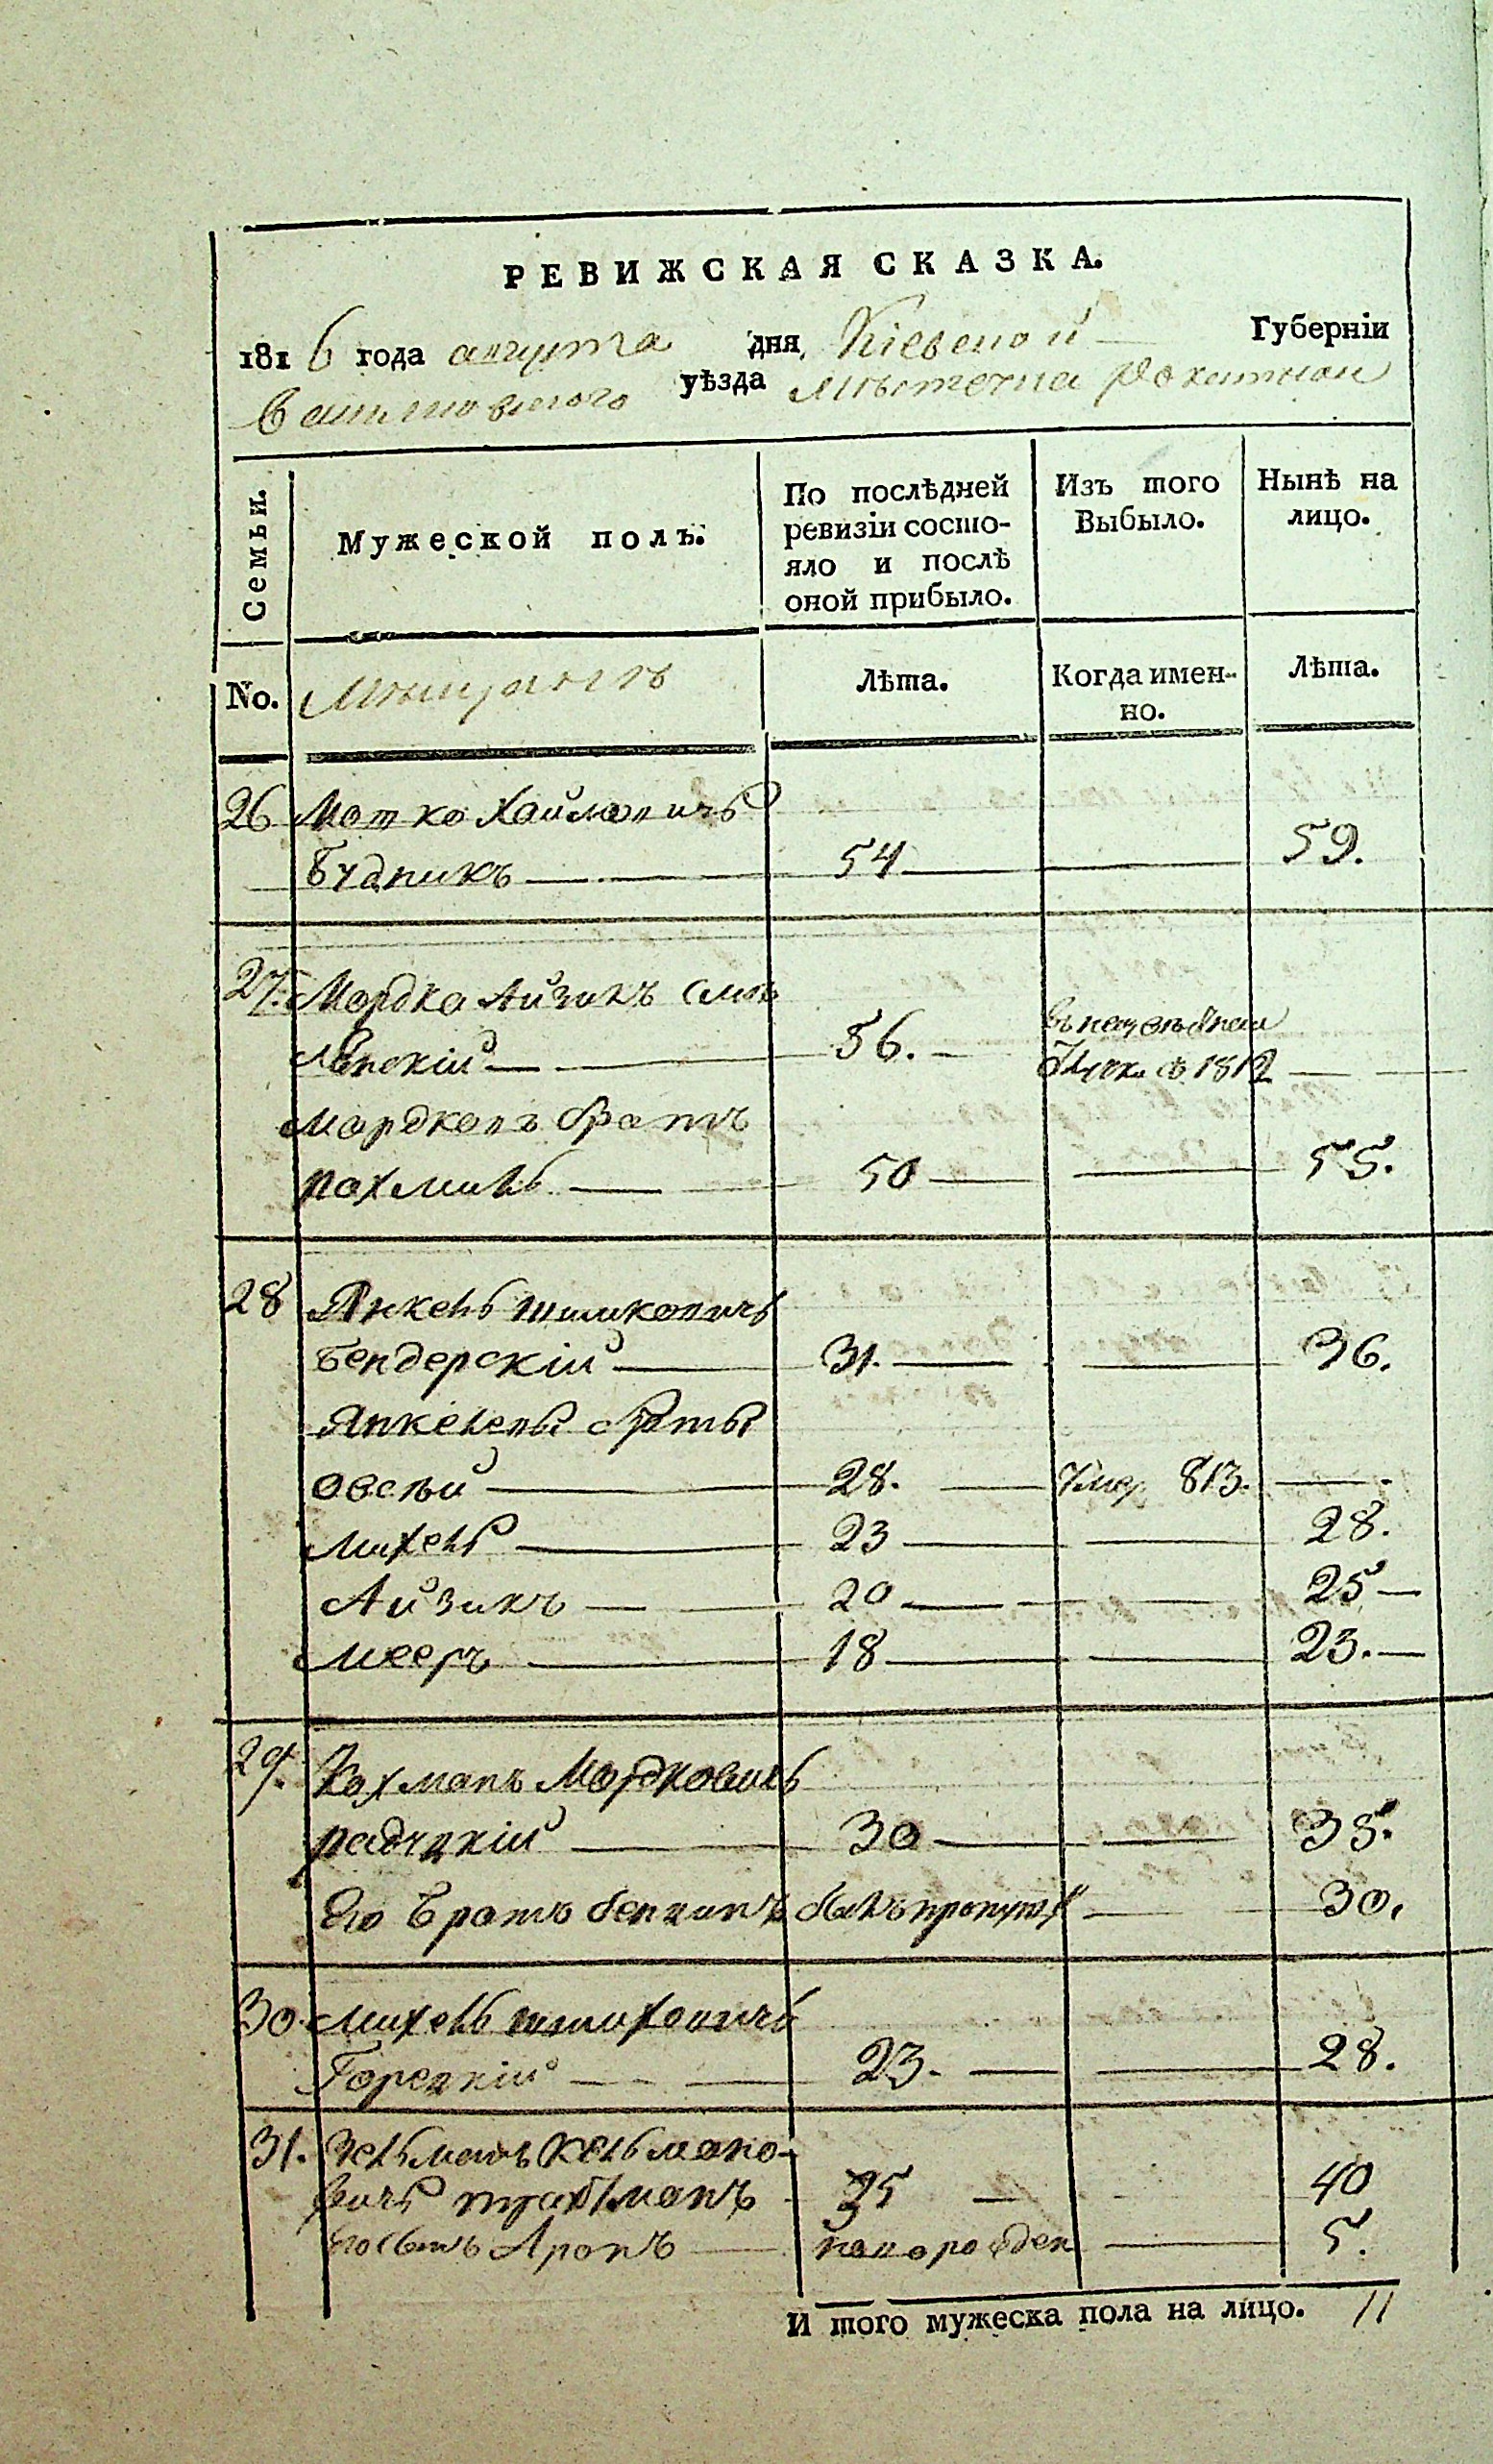 РЕВИЖСКАЯ СКАЗКА.
1816 года августа дня, Кіевской Губерніи
уѣзда мѣстечка Рокитной
Семьи.
Мужеской полъ.
По послѣдней
ревизіи состо-
яло и послѣ
оной прибыло.
Изъ того
Выбыло.
Нынѣ на
лицо.
No. Мѣщанъ
Лѣта.
Когда имен-
но.
Лѣта.
26 Мотко Хаимовичъ
Будникъ 54 59.
27. Мордко Айзикъ Смѣ
лянскій 56. 1812
Мордковъ братъ
Рахмиль 50 55.
28 Янкель Шликовичъ
Бендерскій 31. 36.
Янкелевы браты
Овсѣй 28. Умер. 813.
Михель 23 28.
Айзикъ 20 25
Мееръ 18 23.
29. Нохманъ Мордковичъ
Радчцкій 30 35.
Его братъ Бенцинъ былъ пропущ. 30.
30. Михель
Горецкій 23. 28.
31. Зельманъ Кельмано-
вичъ Трахтманъ 35 40
Его сынъ Аронъ новорожден 5.
И того мужеска пола на лицо. 11